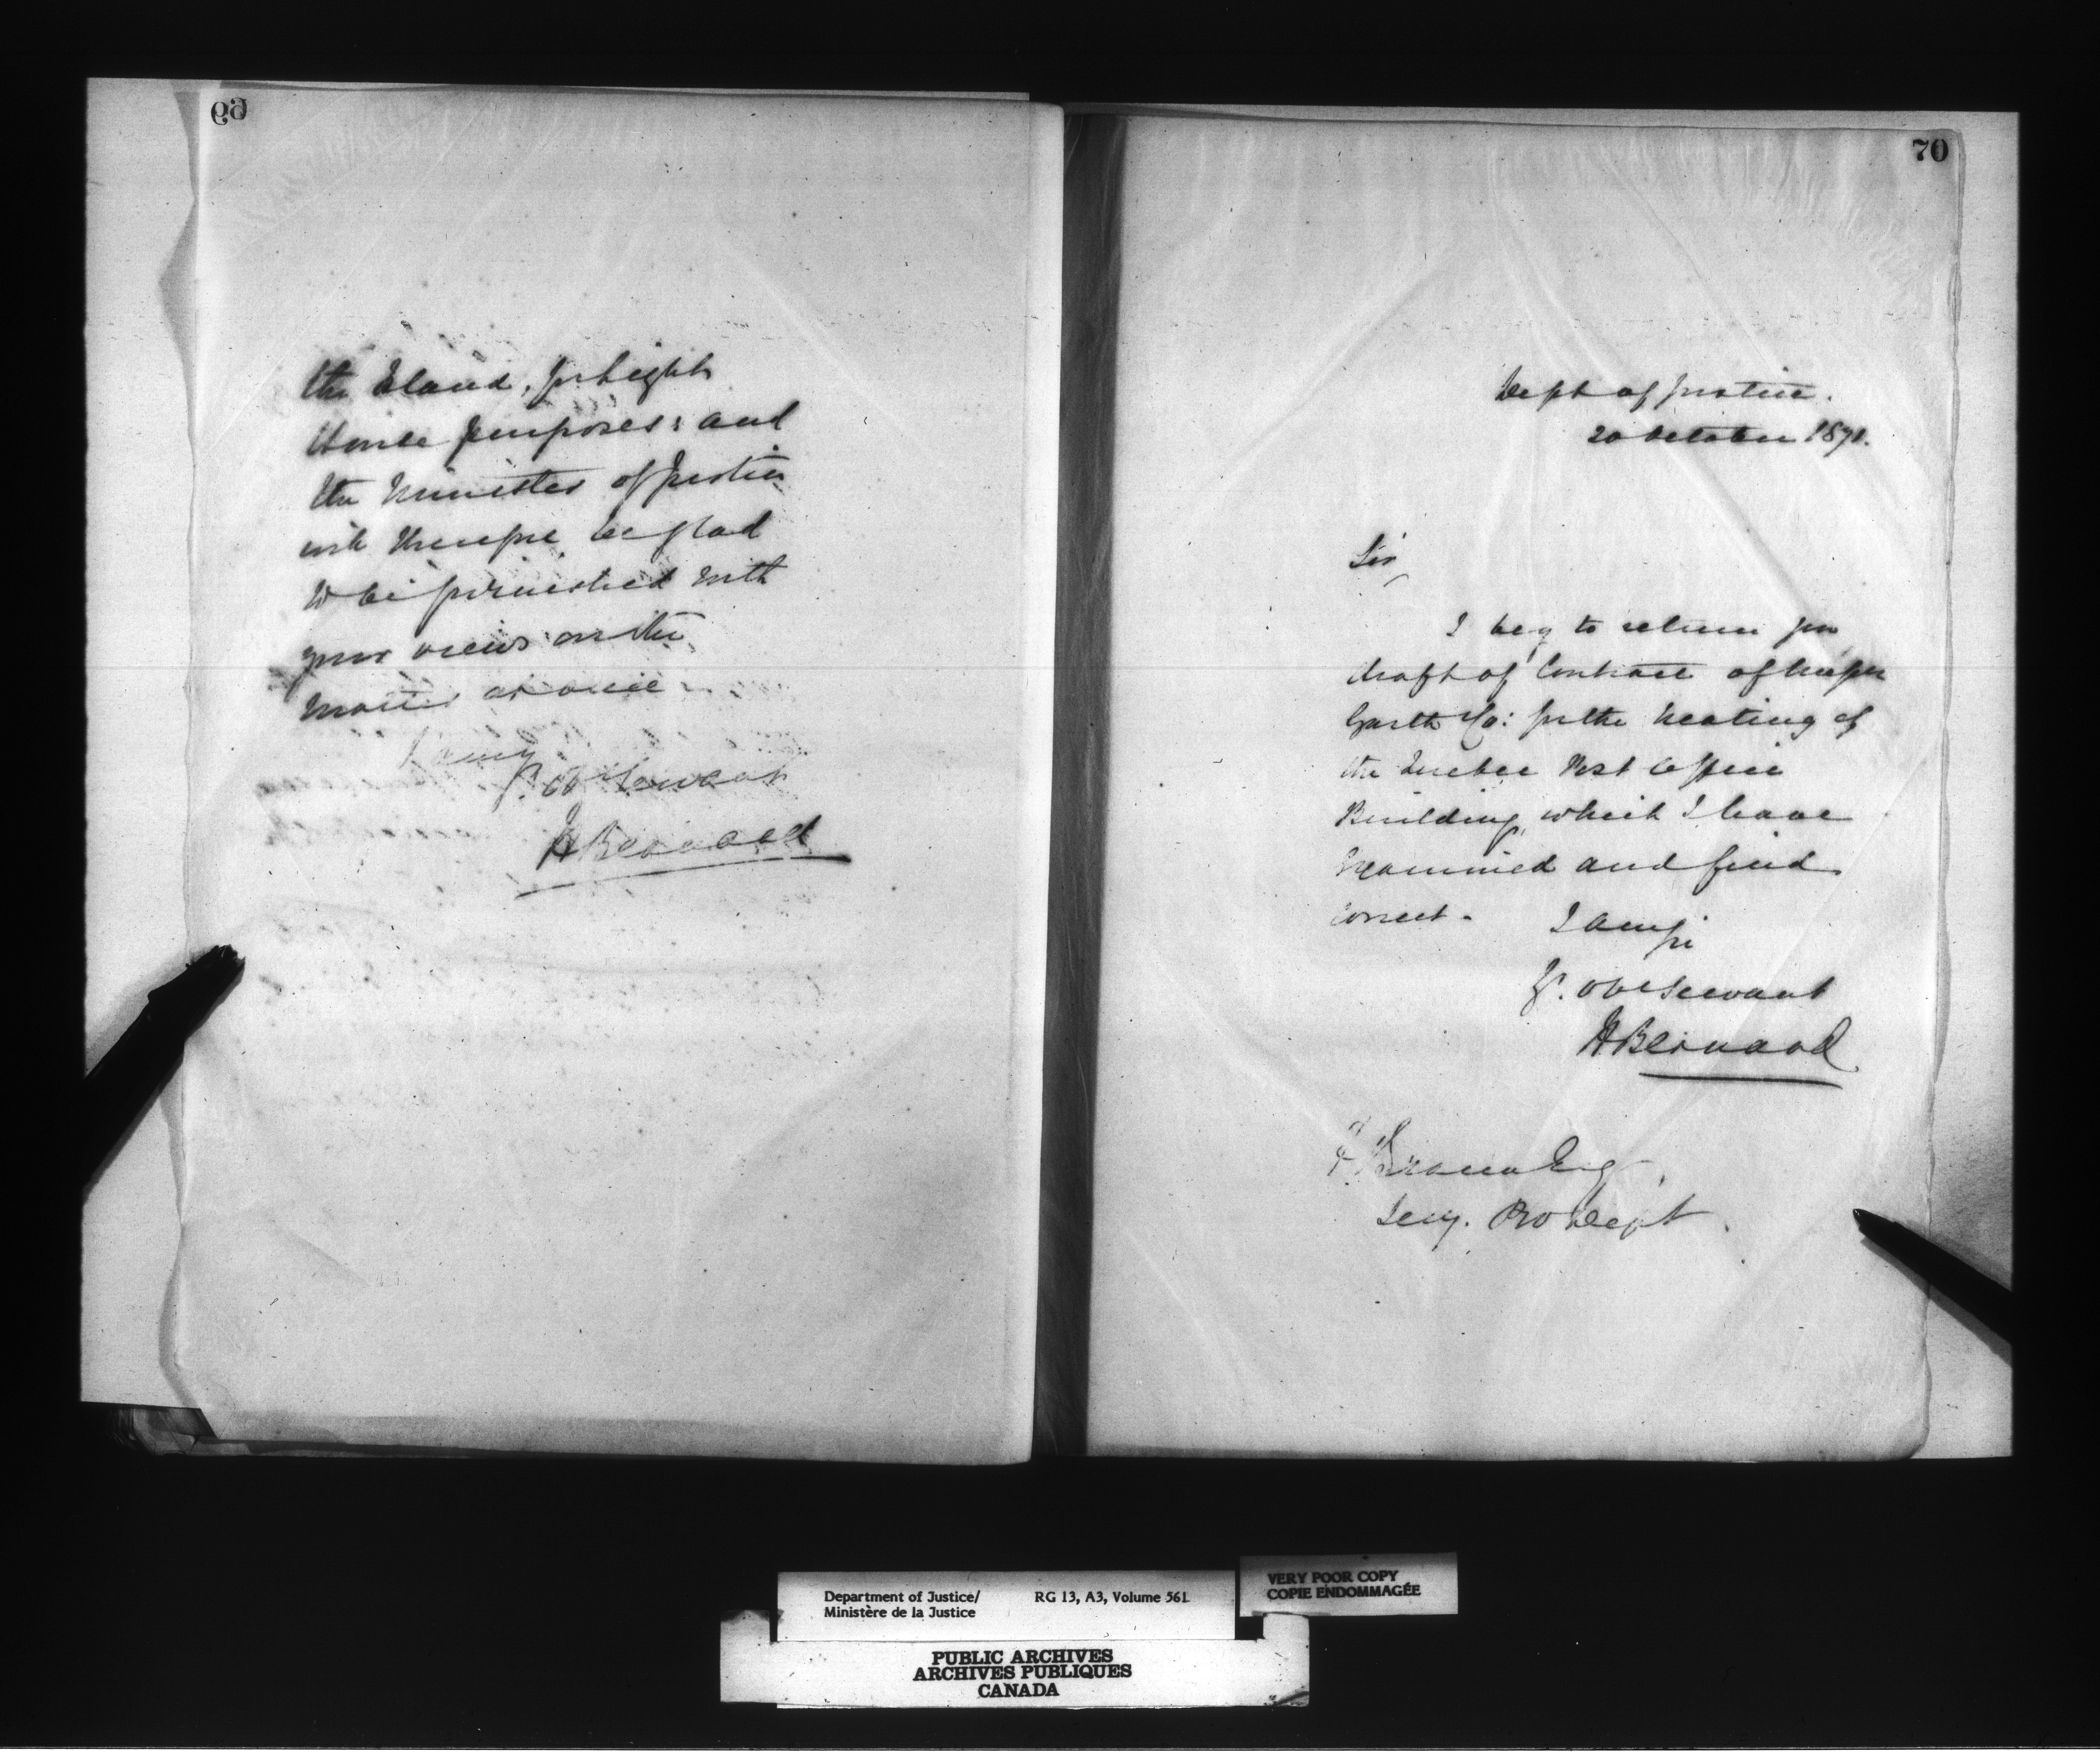 69
the Island, for Light
House purposes; and
the Minister of Justice
will therefore be glad
to be furnished with
your views on the
matter at once
I am
Yr. Obt Servant
H Bernard
70
Dept of Justice.
20 October 1871.
Sir
I beg to return you
draft of Contract of Messrs
Garth & Co: for the heating of
the Quebec Post Office
Building, which I have
examined and find
correct.
I am Sir
Yr. obt servant
H Bernard
F Braun Esq
Secy. P W Dept.
Department of Justice/
Ministère de la Justice
RG 13, A3, Volume 561
VERY POOR COPY
COPIE ENDOMMAGÉE
PUBLIC ARCHIVES
ARCHIVES PUBLIQUES
CANADA